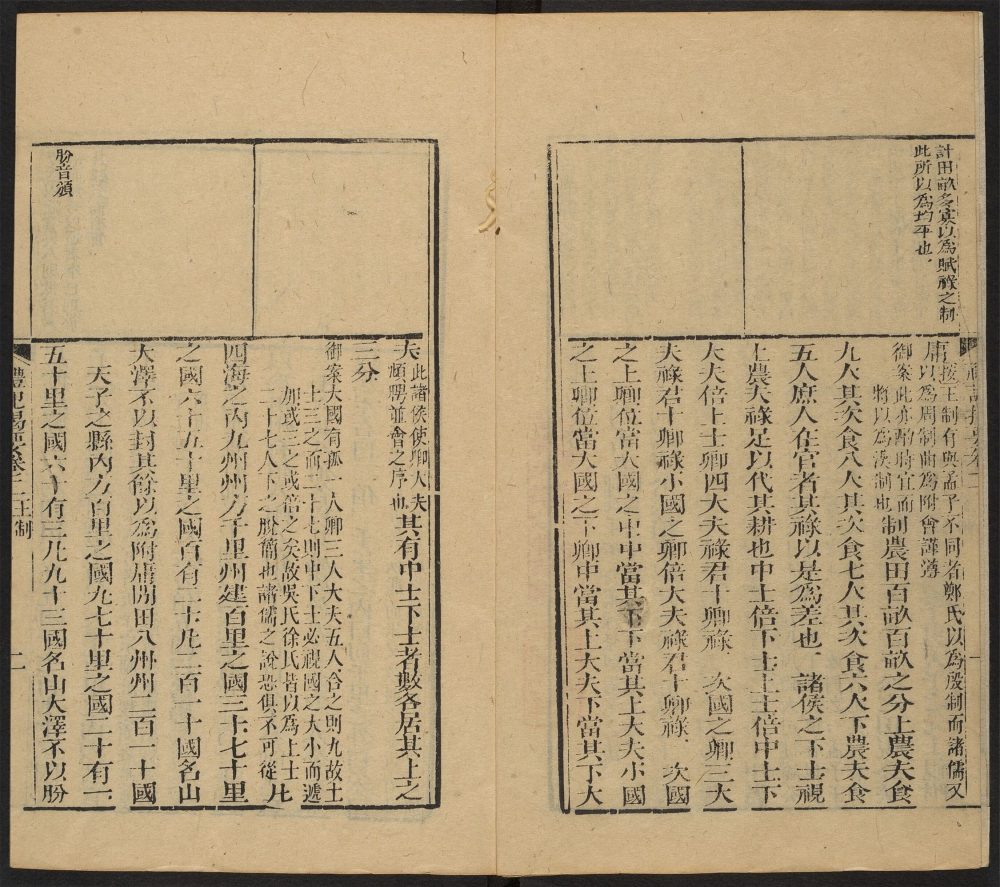 計田畝多寡以爲賦祿之制
此所以爲均平也
按王制有與孟子不同者鄭氏以爲殷制而諸儒又
以爲周制曲爲附會謹
御案此亦酌時宜而
將以爲漢制也
制農田百畝百畝之分上農夫食
九人其次食八人其次食七人其次食六人下農夫食
五人庶人在官者其祿以是爲差也諸侯之下士視
上農夫祿足以代其耕也中士倍下士上士倍中士下
大夫倍上士卿四大夫祿君十卿祿次國之卿三大
夫祿君十卿祿小國之卿倍大夫祿君十卿祿次國
之上卿位當大國之中中當其下下當其上大夫小國
之上卿位當大國之下卿中當其上大夫下當其下大
夫
此諸侯使卿大夫
頫聘並會之序也
其有中士下士者數各居其上之
三分
御案大國有孤一人卿三人大夫五人合之則九故士
上三之而二十七則中下士必視國之大小而遞
加或三之或倍之矣故吳氏徐氏皆以爲上士
二十七人下之脫簡也諸儒之說恐俱不可從
凡
四海之內九州州方千里州建百里之國三十七十里
之國六十五十里之國百有二十凡二百一十國名山
大澤不以封其餘以爲附庸閒田八州州二百一十國
天子之縣內方百里之國九七十里之國二十有一
五十里之國六十有三凡九十三國名山大澤不以朌
朌音頒
禮記揭要卷二 王制
二